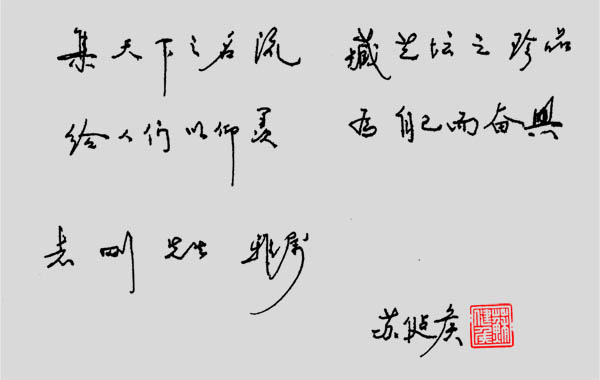 集天下之名流 藏艺坛之珍品
给人们以仰羡 为自己而奋兴
志刚先生 雅属
苏健侯